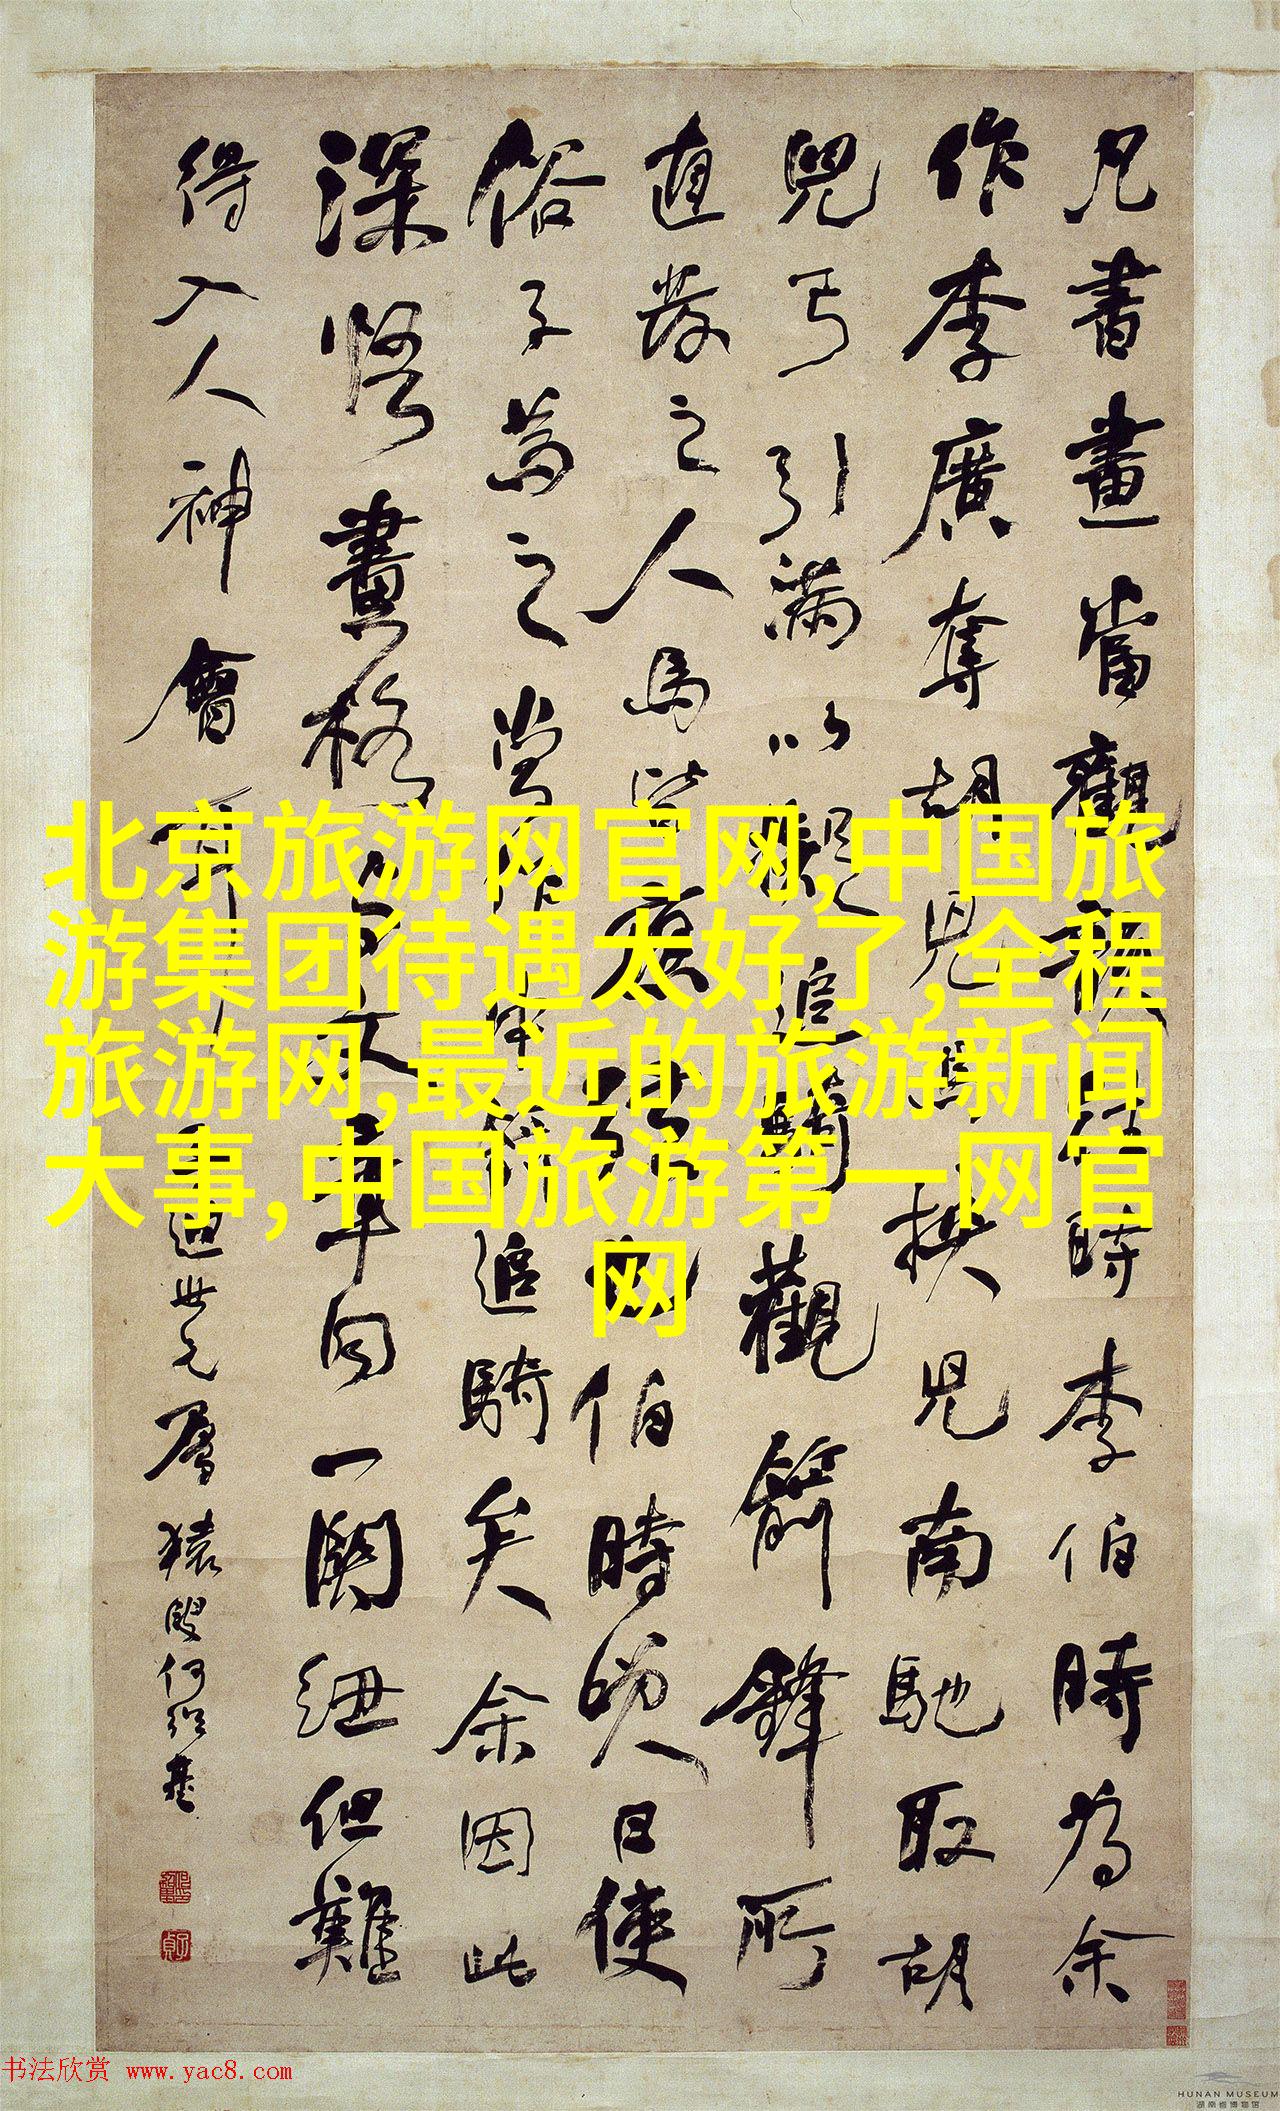 凡書畫當觀韻往時李伯時為余
作李廣奪胡兒馬挾兒南馳取胡
兒弓引滿以擬追騎觀箭鋒所
直發之人馬皆應弦也伯時笑曰使
俗子為之當作中箭追騎矣余因此
深悟畫格此與文章同一關紐但難
得入人神會耳
世兄屬猿叟何紹基
北京旅游网官网,中国旅
游集团待遇太好了,全程
旅游网,最近的旅游新闻
大事,中国旅游第一网官
网
书法欣赏 www.yac8.com
HUNAN MUSEUM
湖南省博物馆